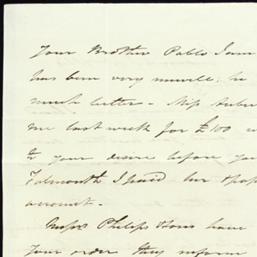 Your Brother Pablo I am
has been very unwell, he
much better - Miss
me last week for £100
to your desire before you
Falmouth I paid her
account. -
Messrs Philips have
your order they inform